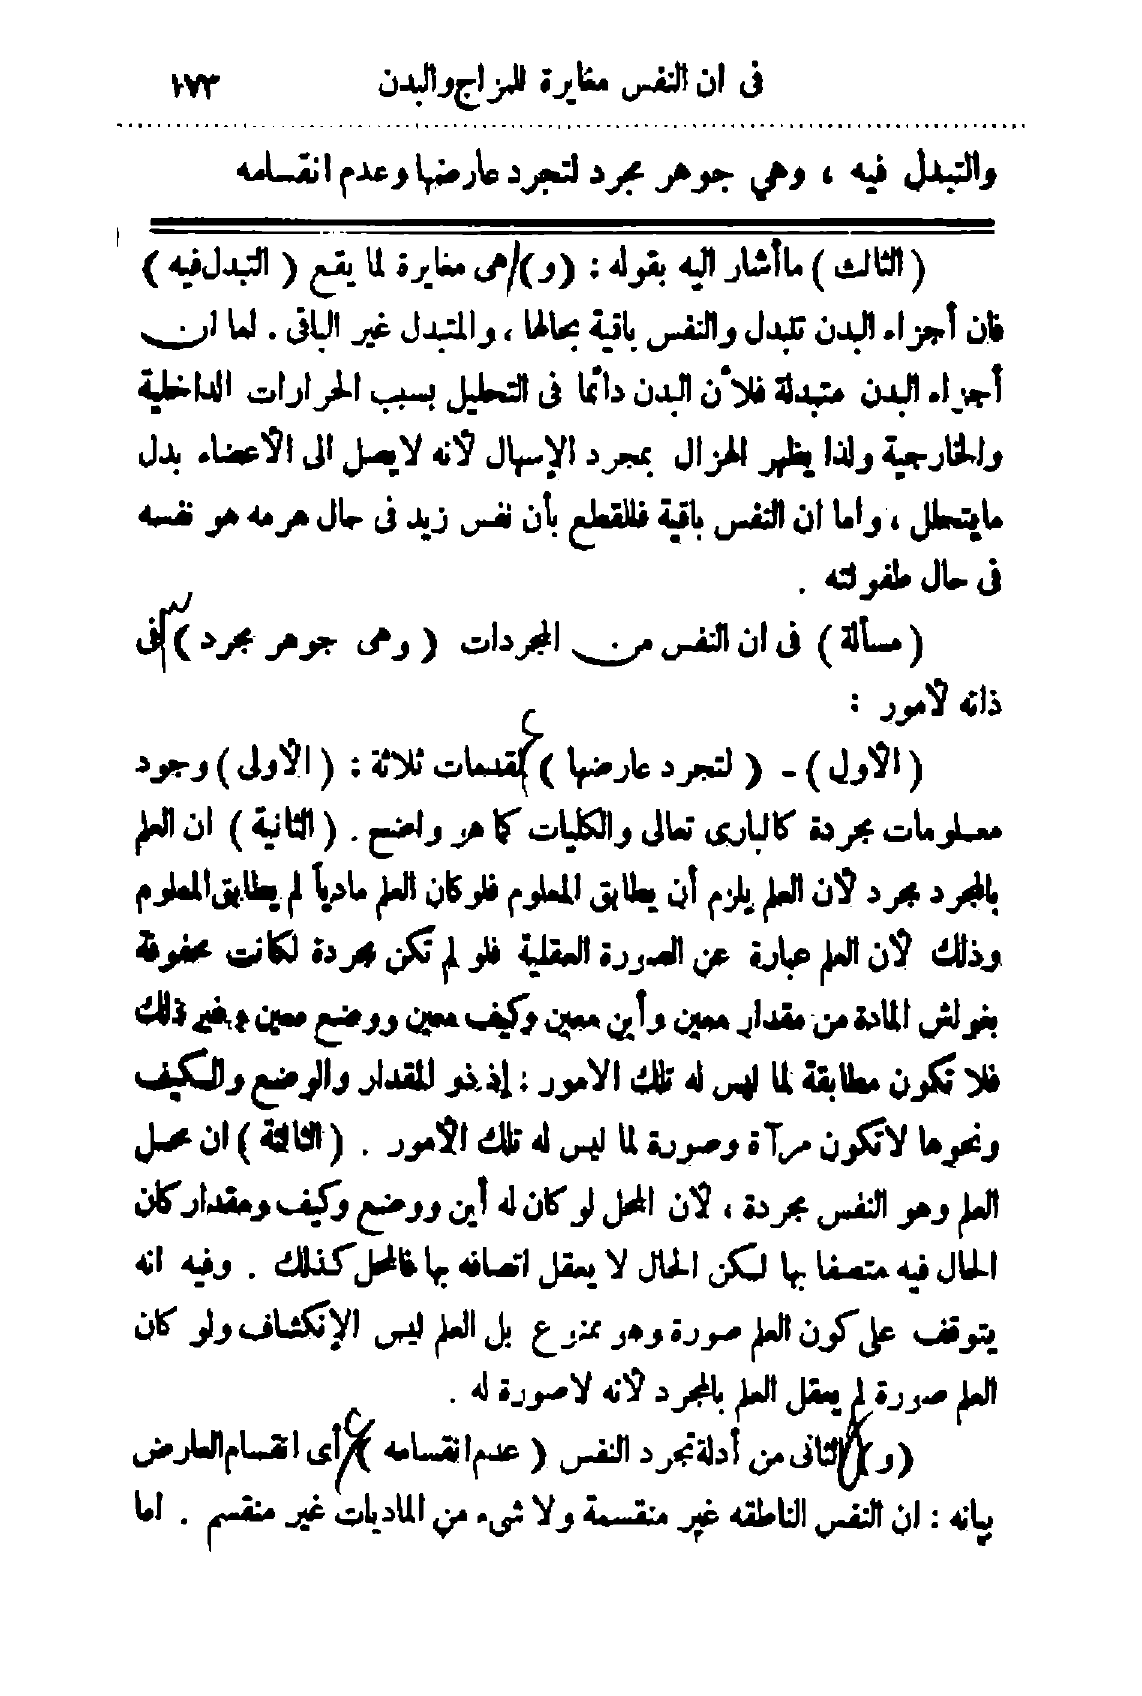 فى ان النفس مغايرة للمزاج والبدن ١٧٣
والتبدل فيه ، وهي جوهر مجرد لتجرد عارضها وعدم انقسامه
( الثالث ) ماأشار اليه بقوله : (و) هى مغايرة لما يقع ( التبدل فيه )
فان أجزاء البدن تتبدل والنفس باقية بحالها ، والمتبدل غير الباقى . اما ان
أجزاء البدن متبدلة فلأن البدن دائما فى التحليل بسبب الحرارات الداخلية
والخارجية ولذا يظهر الهزال بمجرد الإسهال لأنه لايصل الى الأعضاء بدل
مايتحلل ، واما ان النفس باقية فللقطع بأن نفس زيد فى حال هرمه هو نفسه
فى حال طفولته .
( مسألة ) فى ان النفس من المجردات ( وهى جوهر مجرد ) فى
ذاته لأمور :
( الأول ) - ( لتجرد عارضها ) لمقدمات ثلاثة : ( الأولى ) وجود
معلومات مجردة كالبارى تعالى والكليات كما هو واضح . ( الثانية ) ان العلم
بالمجرد مجرد لأن العلم يلزم أن يطابق المعلوم فلو كان العلم مادياً لم يطابق المعلوم
وذلك لأن العلم عبارة عن الصورة العقلية فلو لم تكن مجردة لكانت محفوفة
بغواش المادة من مقدار معين وأين معين وكيف معين ووضع معين وغير ذلك
فلا تكون مطابقة لما ليس له تلك الامور : إذ ذو المقدار والوضع والكيف
ونحوها لاتكون مرآة وصورة لما ليس له تلك الأمور . ( الثالثة ) ان محل
العلم وهو النفس مجردة ، لأن المحل لو كان له أين ووضع وكيف ومقدار كان
الحال فيه متصفا بها لكن الحال لا يعقل اتصافه بها فالمحل كذلك . وفيه انه
يتوقف على كون العلم صورة وهو ممنوع بل العلم ليس الإنكشاف ولو كان
العلم صورة لم يعقل العلم بالمجرد لأنه لاصورة له .
(و) الثانى من أدلة تجرد النفس ( عدم انقسامه ) أى انقسام العارض
بيانه : ان النفس الناطقه غير منقسمة ولا شىء من الماديات غير منقسم . اما